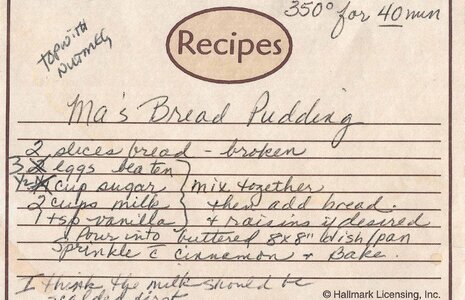 350° for 40 min
Top with
Nutmeg
Recipes
Ma's Bread Pudding
2 slices bread - broken
3 2 eggs beaten
cup sugar } mix together
2 cups milk then add bread.
1 tsp vanilla & raisins if desired
Pour into buttered 8x8" dish/pan
Sprinkle c̄ cinnamon & Bake.
I think the milk should be
scalded first
© Hallmark Licensing, Inc.